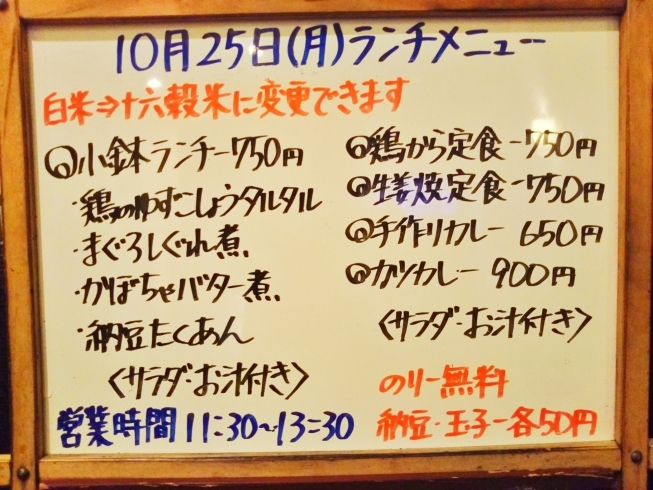 10月25日(月)ランチメニュー
白米⇒十六穀米に変更できます
◎小鉢ランチー750円
・鶏のゆずこしょうタルタル
・まぐろしぐれ煮
・かぼちゃバター煮
・納豆たくあん
〈サラダ・お汁付き〉
営業時間11:30〜13:30
◎鶏から定食ー750円
◎生姜焼定食ー750円
◎手作りカレー 650円
◎カツカレー 900円
〈サラダ・お汁付き〉
のりー無料
納豆・玉子ー各50円